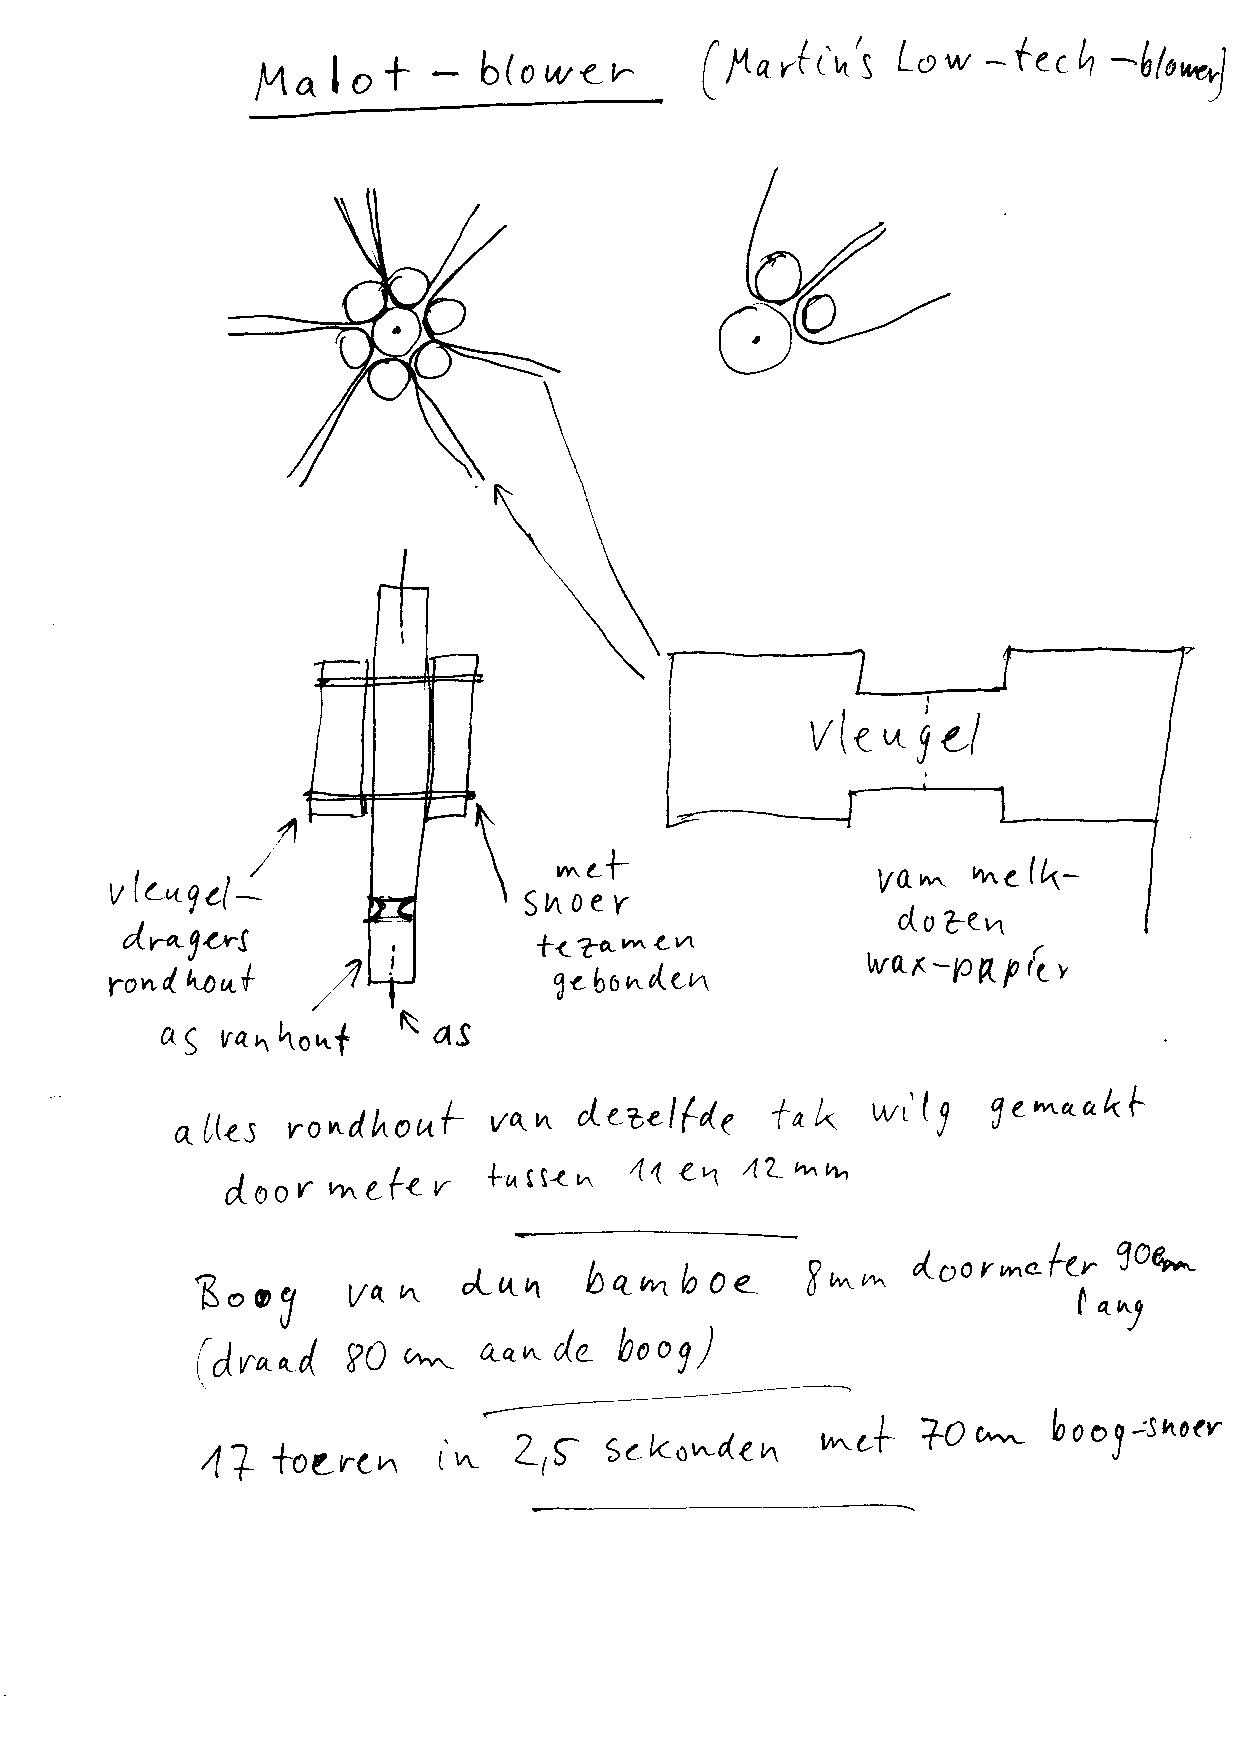 Malot-blower (Martin's Low-tech-blower)
vleugel
vleugel-
dragers
rondhout
as vanhout
as
met
snoer
tezamen
gebonden
vam melk-
dozen
wax-papier
alles rondhout van dezelfde tak wilg gemaakt
doormeter tussen 11 en 12mm
Boog van dun bamboe 8mm doormeter 90cm
lang
(draad 80cm aan de boog)
17 toeren in 2,5 sekonden met 70cm boog-snoer